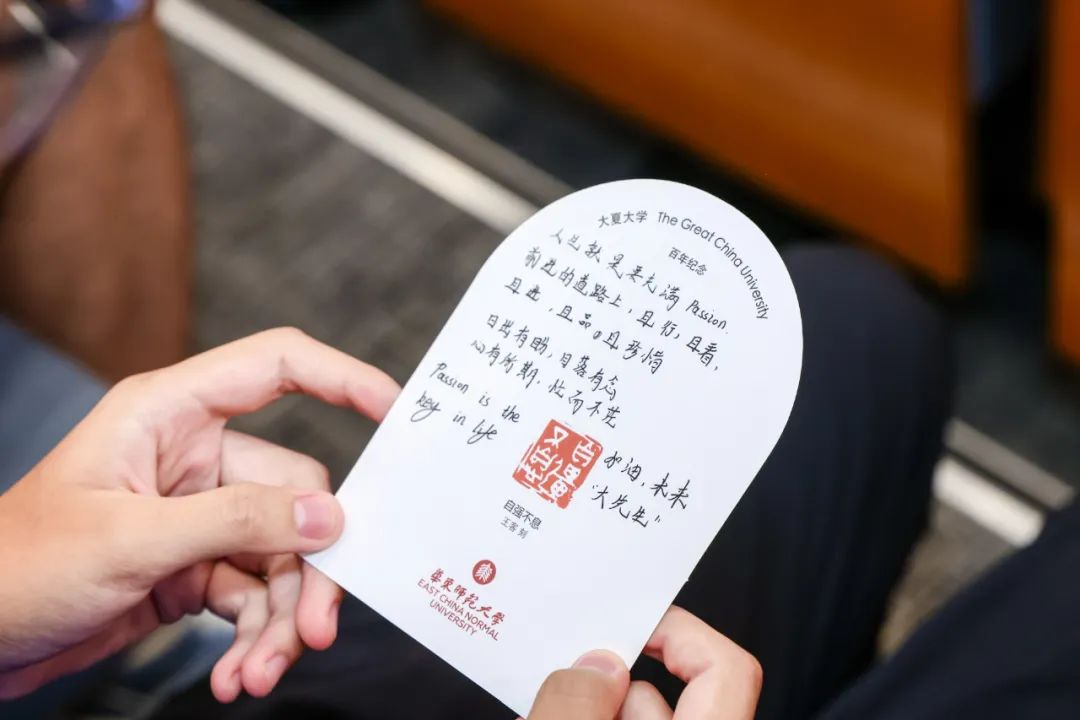 大夏大学 The Great China University
百年纪念
人生就是要充满 Passion.
前进的道路上,且行,且看,
且进,且品。且珍惜
日出有盼,日落有念
心有所期,忙而不茫
Passion is the
key in life
自强不息
加油,未来
"大先生"
自强不息
王客 刻
華東師範大學
EAST CHINA NORMAL
UNIVERSITY